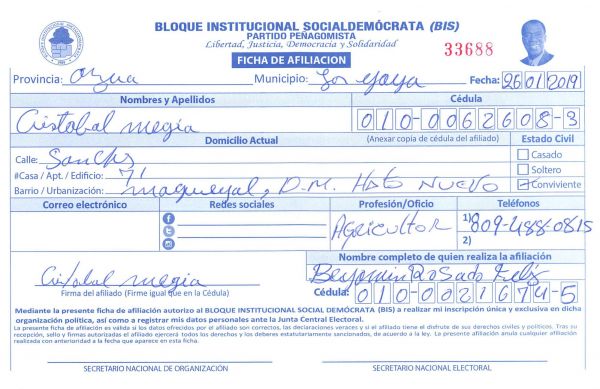 BLOQUE INSTITUCIONAL SOCIALDEMÓCRATA (BIS)
PARTIDO PEÑAGOMISTA
Libertad, Justicia, Democracia y Solidaridad
FICHA DE AFILIACION
33688
Provincia: Azua Municipio: Los Yayas Fecha: 26/01/2019
Nombres y Apellidos Cédula
Cristobal megia 010-0062608-3
Domicilio Actual (Anexar copia de cédula del afiliado) Estado Civil
Calle: Sanchez Casado
#Casa / Apt. / Edificio: 71 Soltero
Barrio / Urbanización: magueyal, D.M. Hato Nuevo Conviviente
Correo electrónico Redes sociales Profesión/Oficio Teléfonos
Agricultor 1) 809-488-0815
2)
Nombre completo de quien realiza la afiliación
Cristobal megia Benjamin Rosado Feliz
Firma del afiliado (Firme igual que en la Cédula) Cédula: 010-0021674-5
Mediante la presente ficha de afiliación autorizo al BLOQUE INSTITUCIONAL SOCIAL DEMÓCRATA (BIS) a realizar mi inscripción única y exclusiva en dicha
organización política, así como a registrar mis datos personales ante la Junta Central Electoral.
La presente ficha de afiliación es válida si los datos ofrecidos por el afiliado son correctos, las declaraciones veraces y si el afiliado tiene el disfrute de sus derechos civiles y políticos. Tras su
recepción, sello y firmas autorizadas el afiliado ejercerá todos los derechos y los deberes estatutariamente sancionados, de acuerdo a la ley. La presente afiliación anula cualquier afiliación
realizada con anterioridad a la fecha que aparece en esta ficha.
SECRETARIO NACIONAL DE ORGANIZACIÓN SECRETARIO NACIONAL ELECTORAL